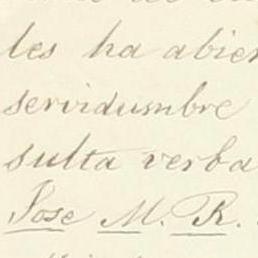 les ha abier
servidumbre
sulta verba
Jose M. R.